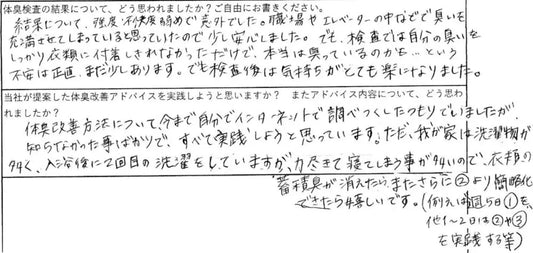 体臭検査の結果について、どう思われましたか？ご自由にお書きください。
結果について、強度、不快度弱めで意外でした。職場やエレベーターの中などで臭いを
充満させてしまっていると思っていたので少し安心しました。でも、検査では自分の臭いを
しっかり衣類に付着しきれなかっただけで、本当は臭っているのかも…という
不安は正直、まだ少しあります。でも検査後は気持ちがとても楽になりました。
当社が提案した体臭改善アドバイスを実践しようと思いますか？　またアドバイス内容について、どう思わ
れましたか？
体臭改善方法について、今まで自分でインターネットで調べつくしたつもりでいましたが、
知らなかった事ばかりで、すべて実践しようと思っています。ただ、我が家は洗濯物が
多く、入浴後に2回目の洗濯をしていますが、力尽きて寝てしまう事が多いので、衣類の
蓄積臭が消えたら、またさらに②より簡略化
できたら嬉しいです。（例えば週5日①を、
他1～2日は②や③
を実践する等）